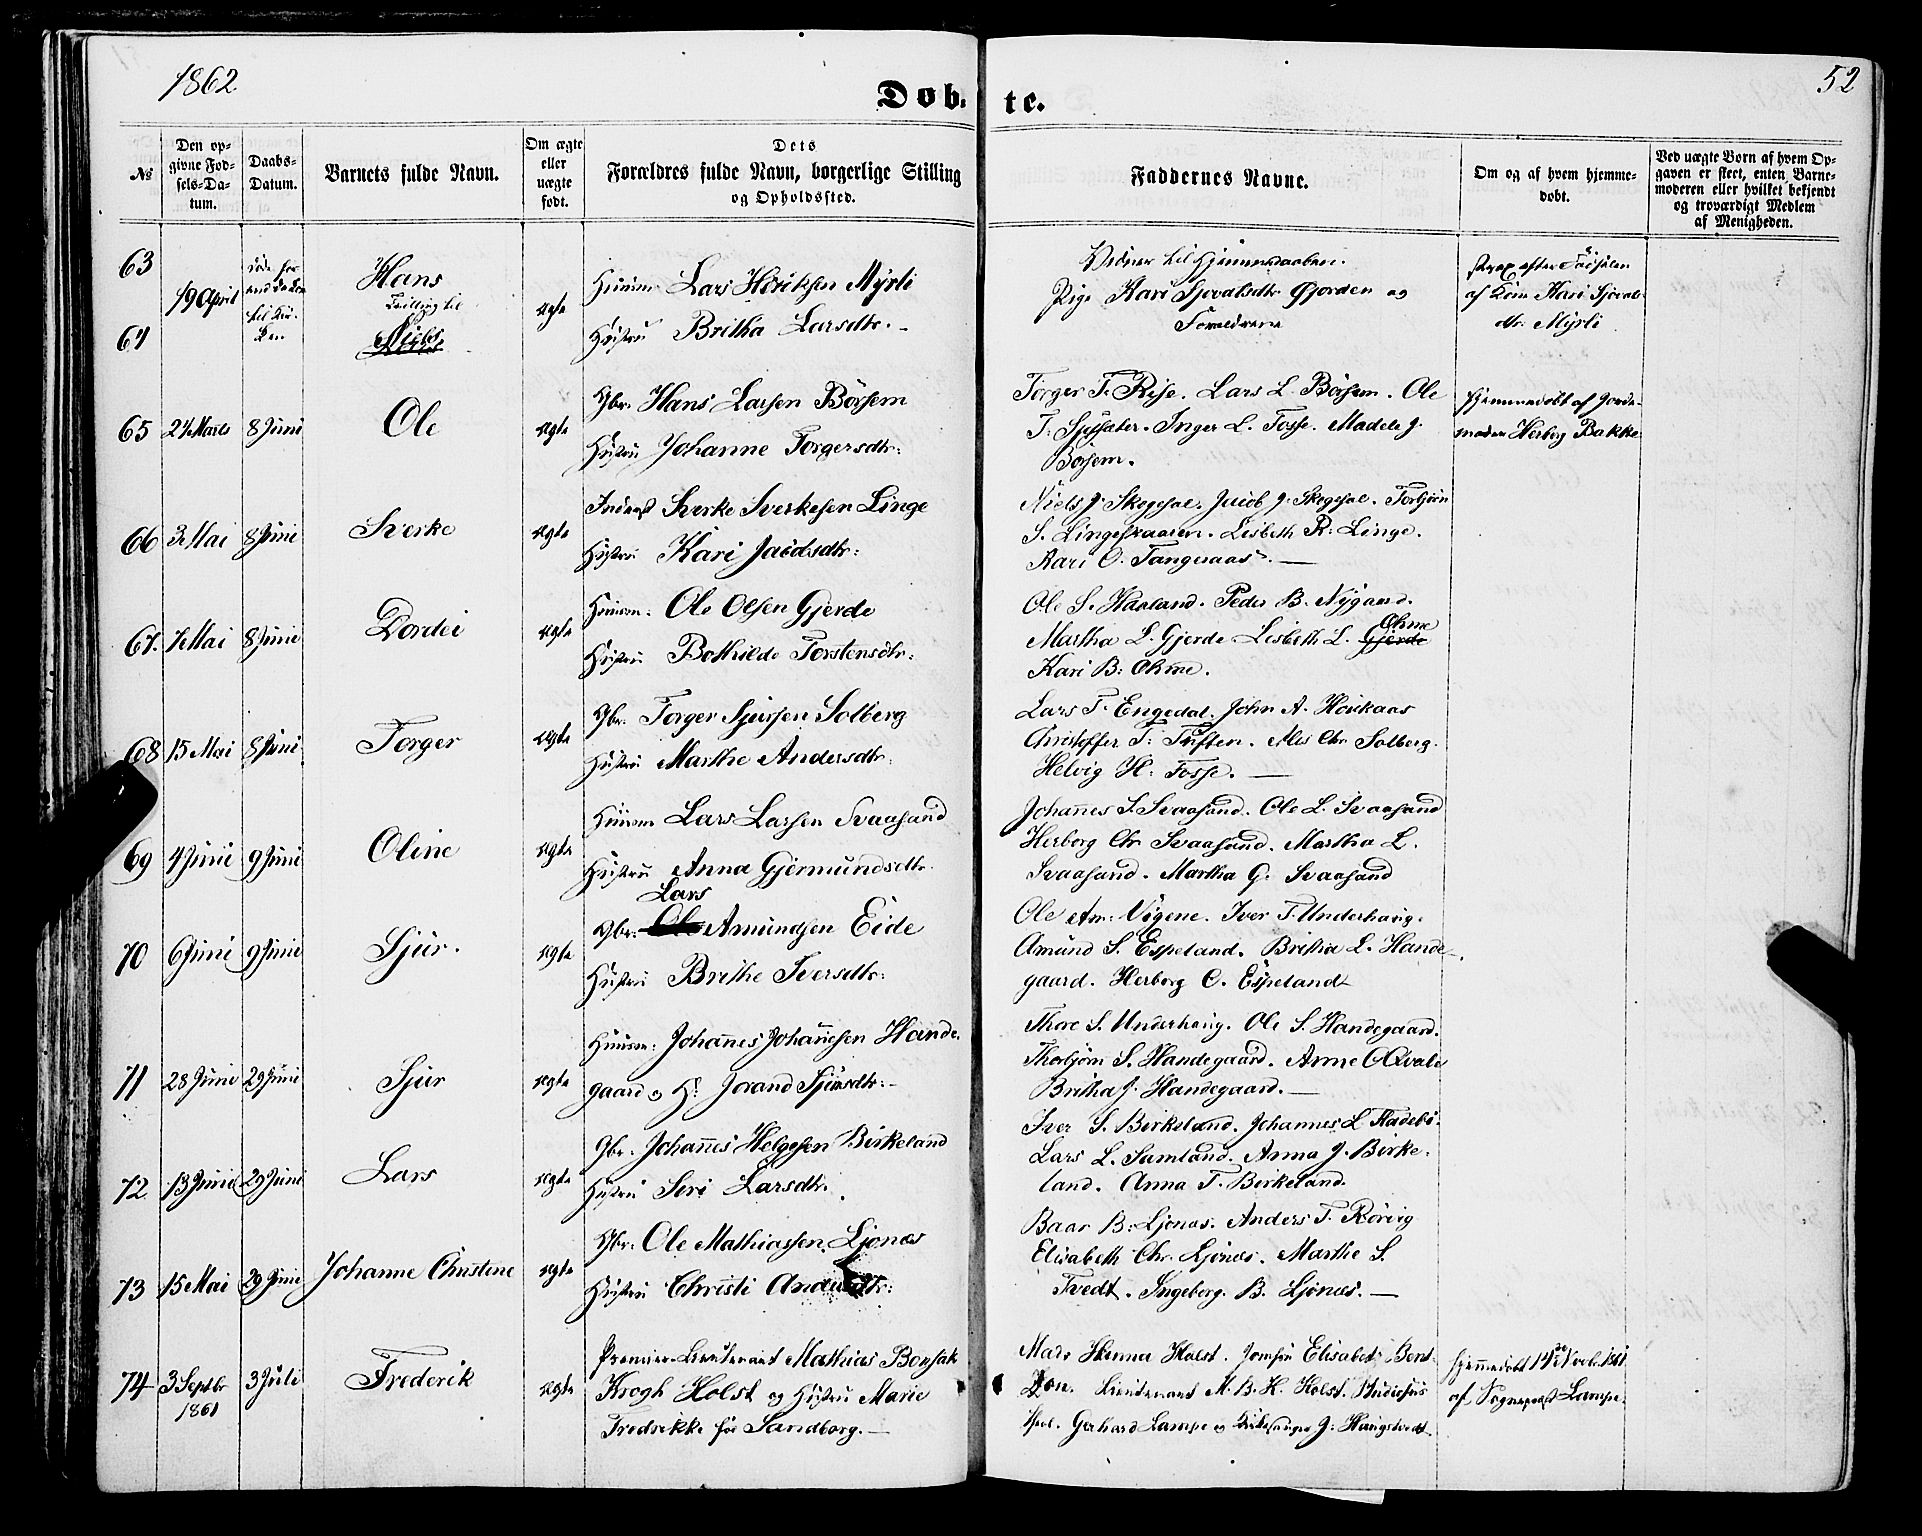 1862
52
Døb- te.
№
Den op-
givne Fød-
sels-Da-
tum.
Daabs-
Datum.
Barnets fulde Navn.
Om ægte
eller
uægte
født.
Dets
Forældres fulde Navn, borgerlige Stilling
og Opholdssted.
Faddernes Navne.
Om og af hvem hjemme-
døbt.
Ved uægte Børn af hvem Op-
gaven er skeet, enten Barne-
moderen eller hvilket bekjendt
og troværdigt Medlem
af Menigheden.
63
64
19 April
døde før
til Kir-
ken
Hans
Tvilling til
Niels
ægte
Huusm. Lars Hériksen Myrli
Hustru Britha Larsdtr.
Vidner til Hjemmedaaben.
Pige Kari Sjovatsdtr Gjorden og
Forældrene
strax efter Fødselen
af Kone Kari Sjovats-
dtr. Myrli
65
24 Marts
8 Juni
Ole
ægte
Gbr. Hans Larsen Børsem
Hustru Johanne Torgersdtr:
Torger T. Rise. Lars L. Børsem. Ole
T. . Inger L. Fosse. Madele J.
Børsem.
hjemmedøbt af Jorde-
moder Herborg Bakke
66
3 Mai
8 Juni
Sverke
ægte
Inderst Sverke Sverkesen Linge
Hustru Kari Jacobsdtr:
Niels J. Skogseal. Jacob J. Skogseal. Torbjørn
S. . Lisbeth R. Linge.
Kari O. Tangeraas.
67.
7 Mai
8 Juni
Dordei
ægte
Huusm. Ole Olsen Gjerde
Hustru Bothilde Torstensdtr:
Ole S. Haaland. Peder B. Nygaard.
Martha L. Gjerde. Lisbeth L. Gjerde Ohme
Kari B: Ohme.
68
15 Mai
8 Juni
Torger
ægte
Gbr. Torger Sjursen Solberg
Hustru Marthe Andersdtr:
Lars T. Engedal. John A. Høikaas
Christoffer T: Tuften. Alis Chr Solberg.
Helvig H: Fosse.
69
4 Juni
9 Juni
Oline
ægte
Huusm Lars Larsen Svaasand
Hustru Anna Gjermundsdtr.
Johannes S. Svaasand. Ole L. Svaasand
Herborg Chr Svaasand. Martha L.
Svaasand. Martha G. Svaasand
70
6 Juni
9 Juni
Sjur.
ægte
Lars
Gbr: Ole Amundsen Eide
Hustru Brithe Iversdtr:
Ole Am: Vigene. Iver T. Underhaug.
Amund S. Espeland. Britha L. Hande-
gaard. Herborg O. Espeland
71
28 Juni
29 Juni
Sjur
ægte
Huusm: Johannes Johannesen Hande-
gaard og H: Jorand Sjursdtr:
Thore S. Underhaug. Ole S. Handegaard.
Thorbjørn S. Handegaard. Anne O Qvale
Britha J. Handegaard.
72
13 Juni
29 Juni
Lars
ægte
Gbr. Johannes Helgesen Birkeland
Hustru Siri Larsdtr.
Iver S. Birkeland. Johannes L
Lars L. Samland. Anna J. Birke-
land. Anna T. Birkeland.
73
15 Mai
29 Juni
Johanne Christine
ægte
Gbr: Ole Mathiassen Ljonæs
Hustru Christi Andersdtr:
Baar B: Ljonæs. Anders T. Rørvig
Elisabeth Chr. Ljonæs. Marthe S.
Tvedt. Ingeborg B. Ljonæs.
74
3 Septbr
1861
3 Juli
Frederik
ægte
Premier-Lieutenant Mathias Bonsak
Krogh Holst og Hustru Marie
Fredrikke før Sandborg.
Mads Hanna Holst. Jomfru Elisabet Bent-
zon. Lieutenant M. B. K. Holst.
Gerhard Lampe og Kirkesanger J: Haugstvedt
hjemmedøbt 14de Novb. 1861
af Sognepræst Lampe.